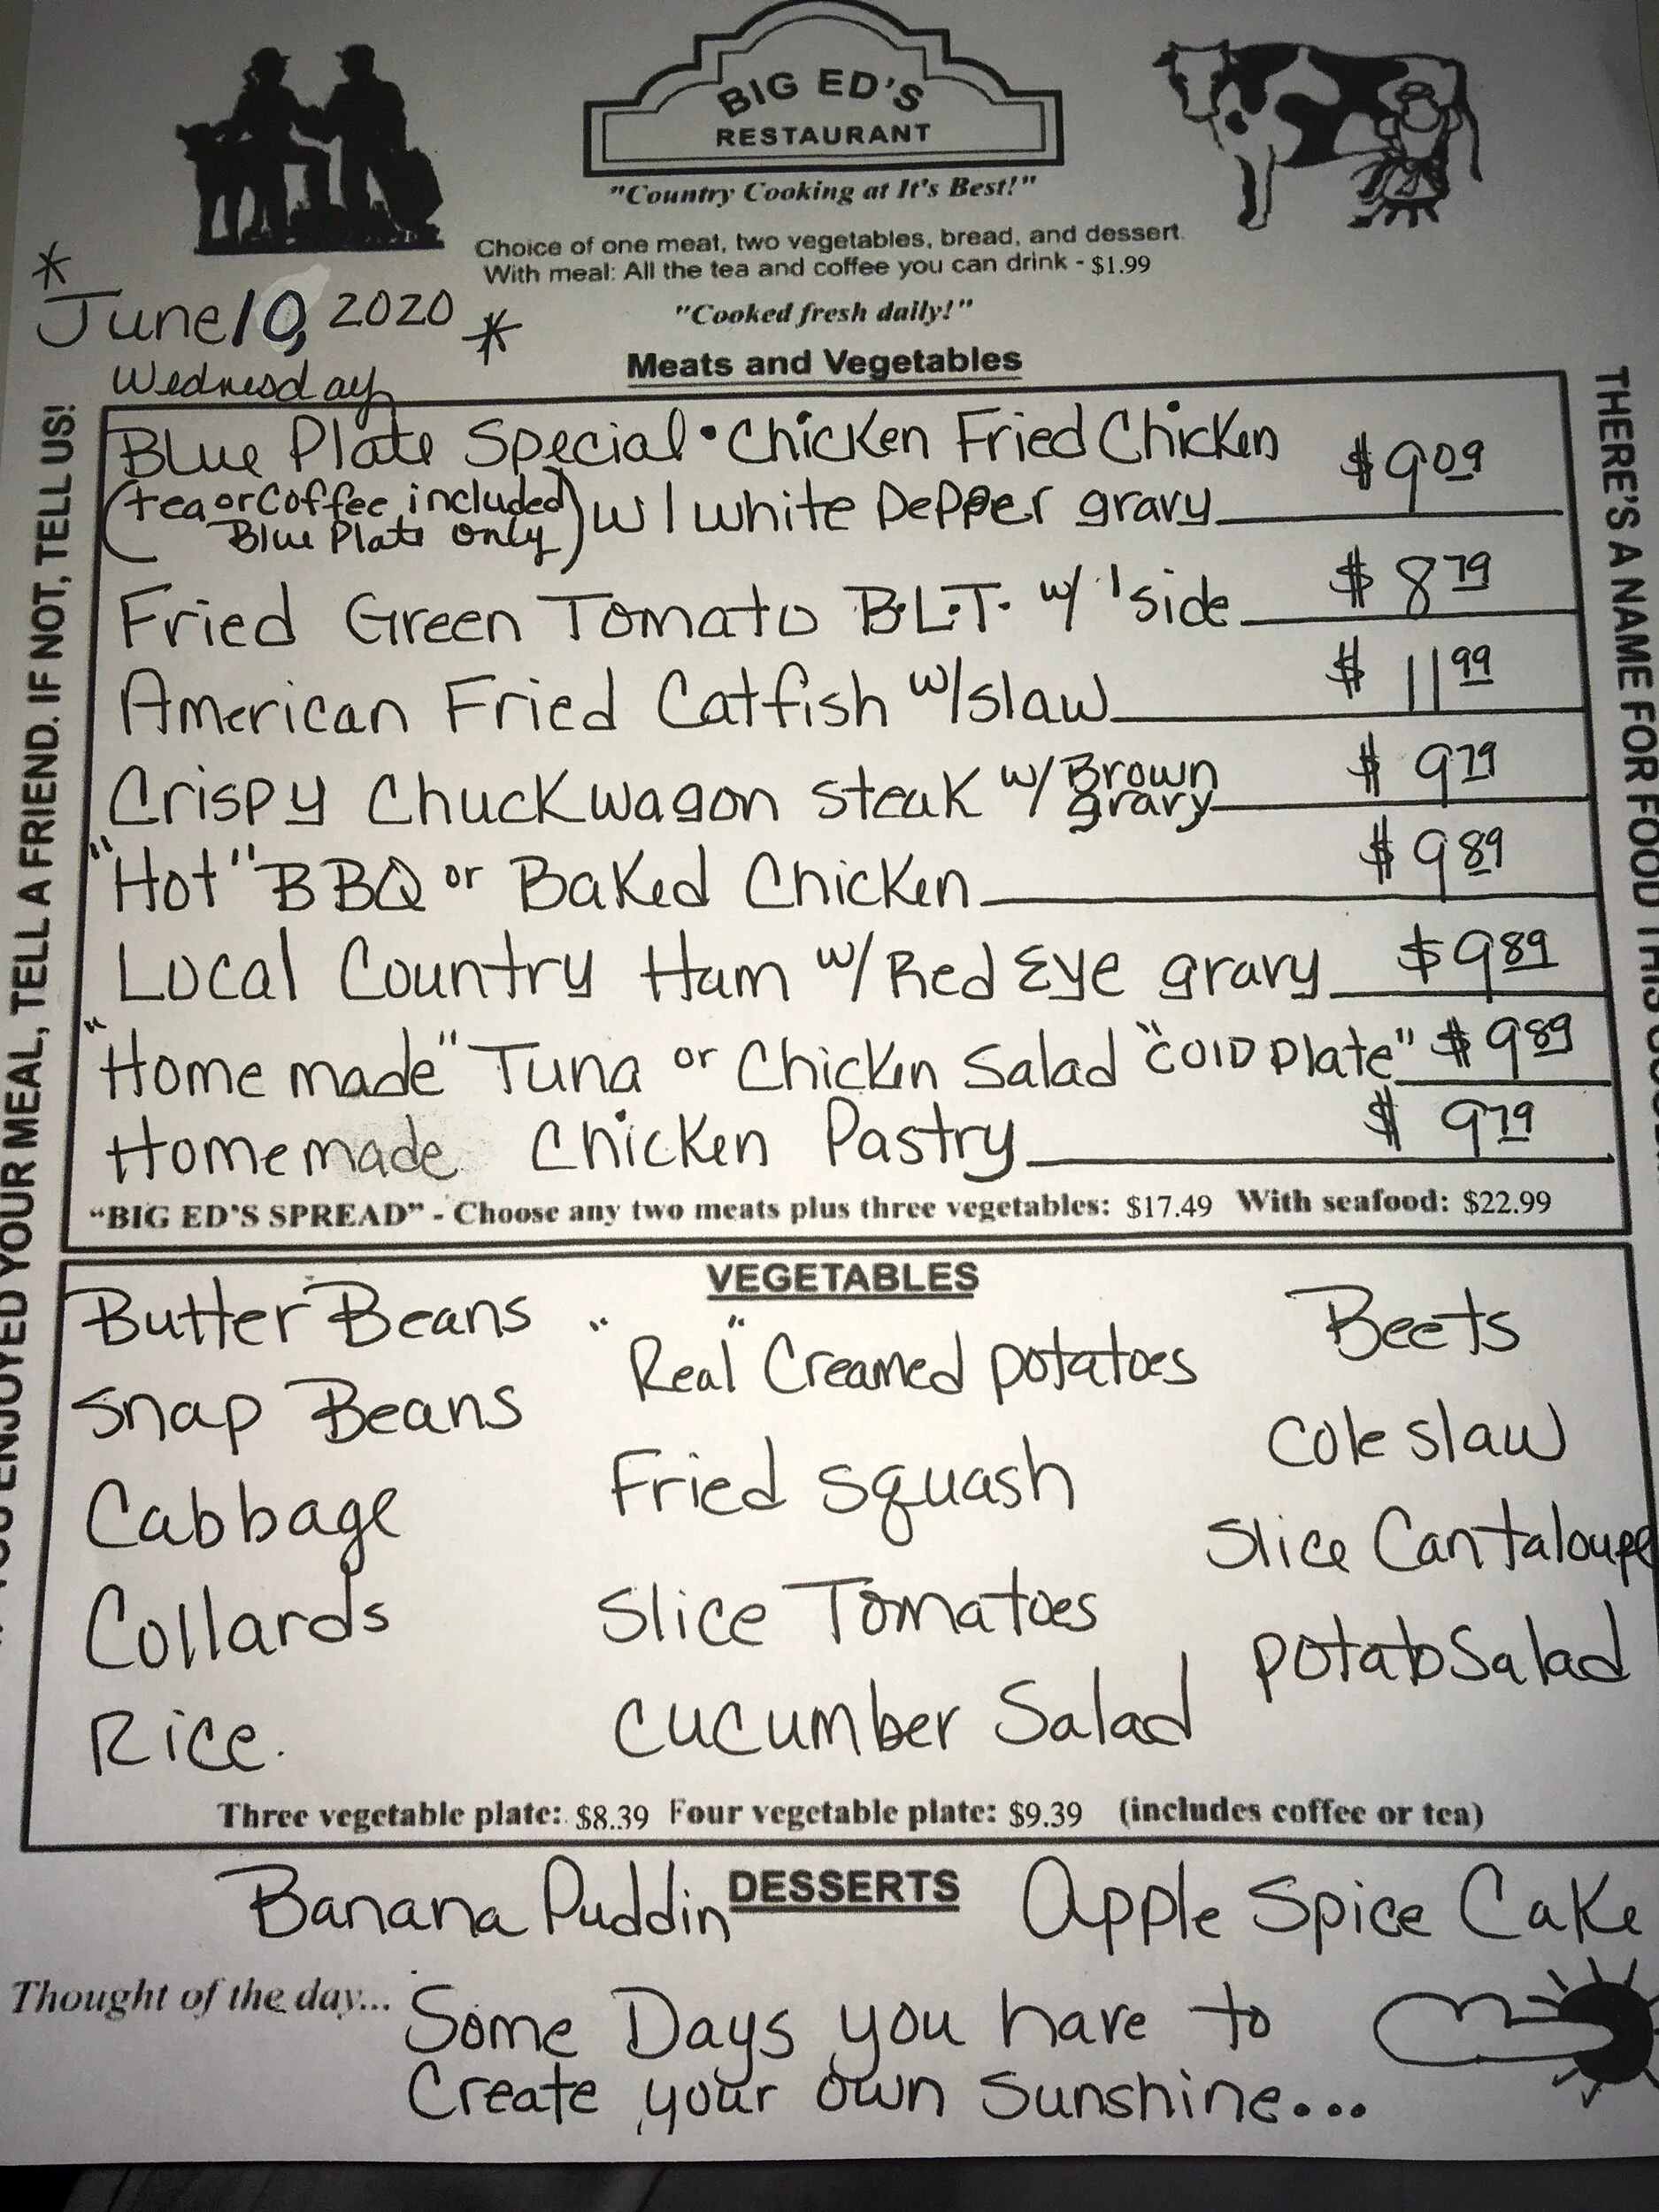 BIG ED'S
RESTAURANT
"Country Cooking at It's Best!"
Choice of one meat, two vegetables, bread, and dessert.
With meal: All the tea and coffee you can drink - $1.99
"Cooked fresh daily!"
* June 10, 2020 *
Wednesday
Meats and Vegetables
Blue Plate Special • Chicken Fried Chicken $9.09
(tea or Coffee included Blue Plate only) w/ white Pepper gravy
Fried Green Tomato B.L.T. w/ 1 side $8.79
American Fried Catfish w/slaw $11.99
Crispy Chuckwagon Steak w/ Brown gravy $9.79
"Hot" BBQ or Baked Chicken $9.89
Local Country Ham w/ Red Eye gravy $9.89
"Home made" Tuna or Chicken Salad "COLD Plate" $9.89
Homemade Chicken Pastry $9.79
"BIG ED'S SPREAD" - Choose any two meats plus three vegetables: $17.49 With seafood: $22.99
VEGETABLES
Butter Beans
Snap Beans
Cabbage
Collards
Rice.
"Real" Creamed potatoes
Fried squash
Slice Tomatoes
Cucumber Salad
Beets
Cole slaw
Slice Cantaloupe
potato Salad
Three vegetable plate: $8.39 Four vegetable plate: $9.39 (includes coffee or tea)
DESSERTS
Banana Puddin
Apple Spice Cake
Thought of the day... Some Days you have to
Create your own Sunshine...
ENJOYED YOUR MEAL, TELL A FRIEND. IF NOT, TELL US!
THERE'S A NAME FOR FOOD THIS